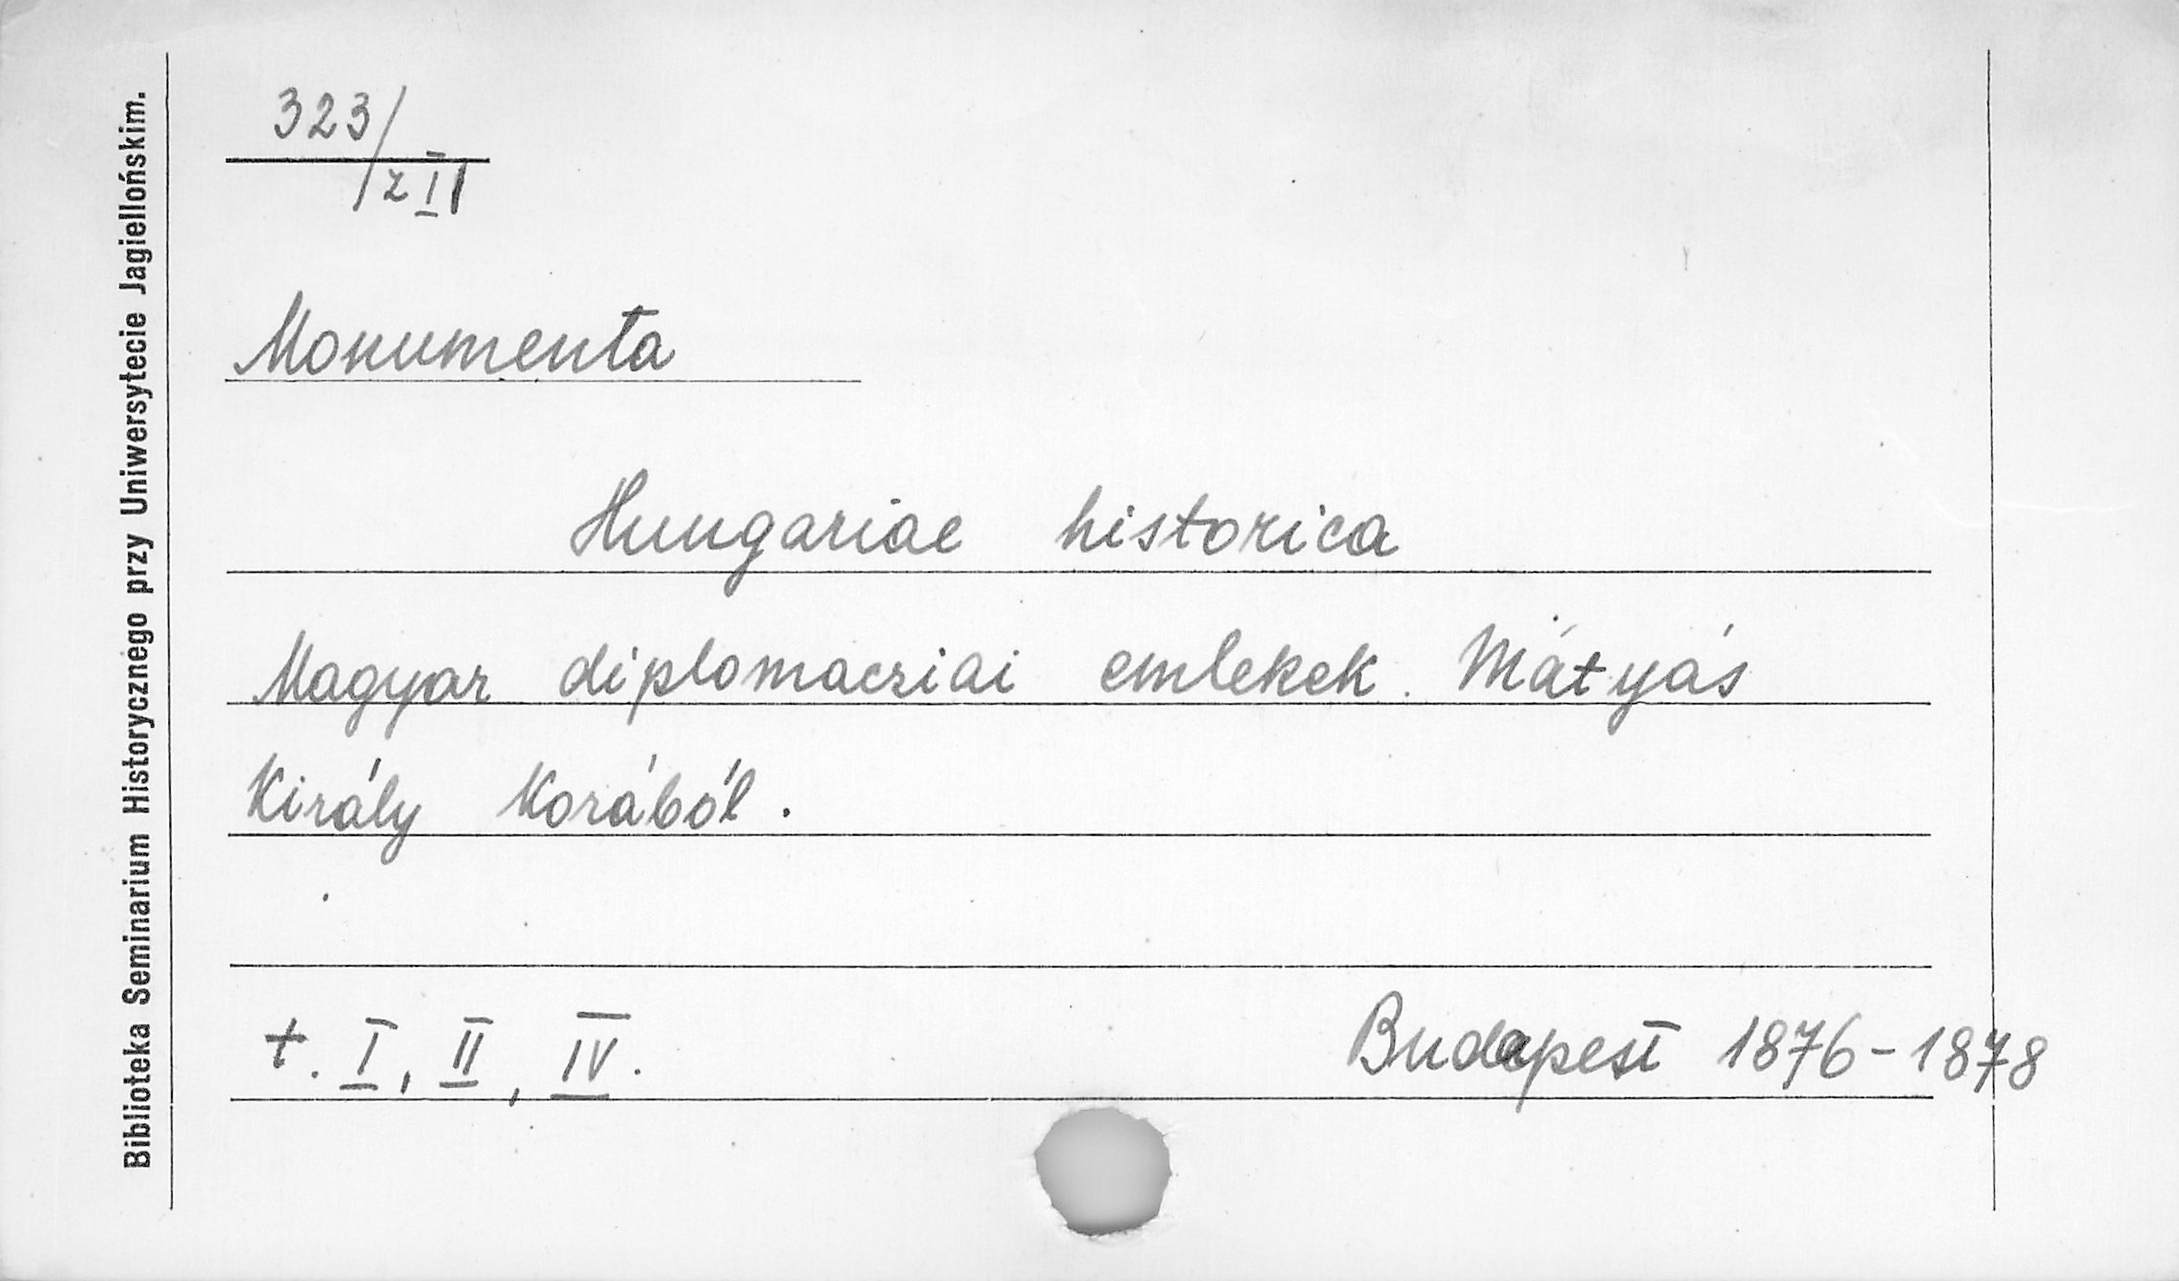 Biblioteka Seminarium Historycznego przy Uniwersytecie Jagiellońskim.
323/
/z II
Monumenta
Hungariae historica
Magyar diplomacziai emlekek. Mátyás
Király Korából.
t. I, II, IV.
Budapest 1876-1878